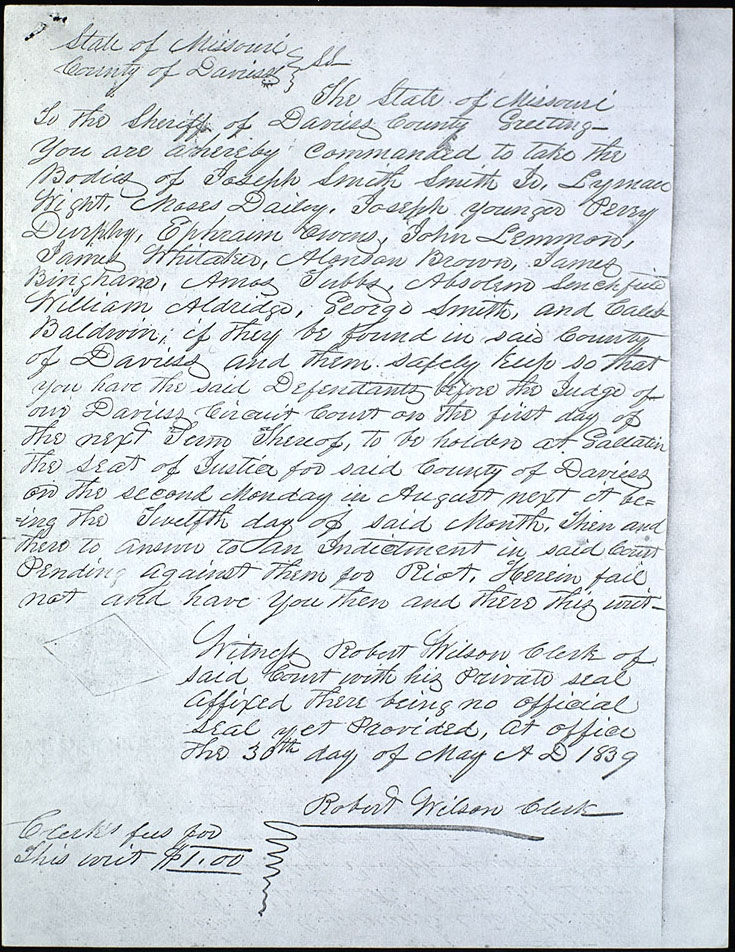 State of Missouri
County of Daviess } SS
The State of Missouri
To the Sheriff of Daviess County Greeting—
You are hereby Commanded to take the
Bodies of Joseph Smith Smith Jr, Lyman
Wight, Moses Dailey, Joseph younger Perry
Durphy, Ephraim Owens, John Lemmon,
James Whitaker, Alonson Brown, James
Bingham, Amos Tubbs, Absolem
William Aldridge, George Smith, and Caleb
Baldwin; if they be found in said County
of Daviess and them safely keep so that
you have the said Defendants before the Judge of
our Daviess Circuit Court on the first day of
the next Term Thereof, to be holden at Gallatin
the seat of Justice for said County of Daviess
on the second Monday in August next it be=
=ing the Twelfth day of said Month. Then and
there to answer to an Indictment in said Court
Pending against them for Riot. Herein fail
not and have You then and there this writ—
Witness Robert Wilson Clerk of
said Court with his Private seal
affixed there being no official
seal yet Provided, at office
the 30th day of May A D 1839
Robert Wilson Clerk
Clerks fees for
This writ $1.00